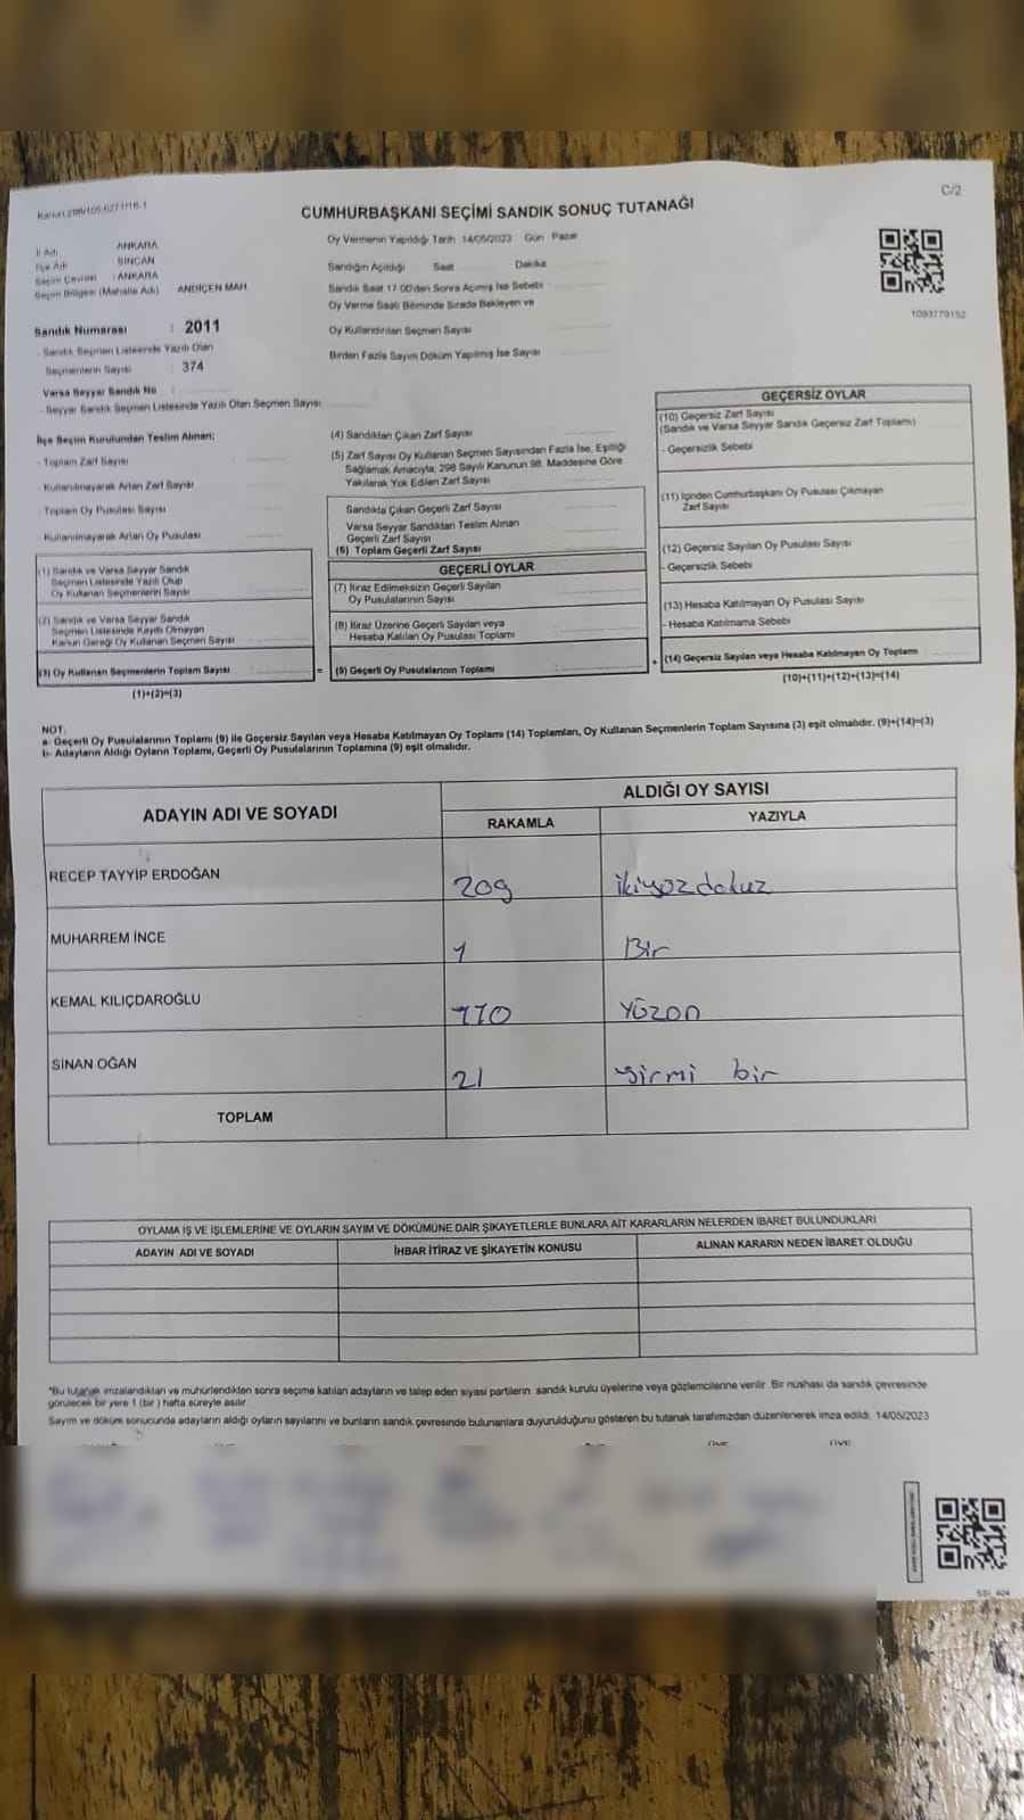 C/2
CUMHURBAŞKANI SEÇİMİ SANDIK SONUÇ TUTANAĞI
İl Adı ANKARA
İlçe Adı SİNCAN
Seçim Çevresi : ANKARA
Seçim Bölgesi (Mahalle Adı) ANDİÇEN MAH.
Sandık Numarası : 2011
- Sandık Seçmen Listesinde Yazılı Olan
Seçmenlerin Sayısı : 374
Varsa Seyyar Sandık No
- Seyyar Sandık Seçmen Listesinde Yazılı Olan Seçmen Sayısı
Oy Vermenin Yapıldığı Tarih 14/05/2023 Gün Pazar
Sandığın Açıldığı Saat Dakika
Sandık Saat 17.00'den Sonra Açılmış İse Sebebi
Oy Verme Saati Bitiminde Sırada Bekleyen ve
Oy Kullandırılan Seçmen Sayısı
Birden Fazla Sayım Döküm Yapılmış İse Sayısı
1093779152
İlçe Seçim Kurulundan Teslim Alınan;
- Toplam Zarf Sayısı
- Kullanılmayarak Artan Zarf Sayısı
- Toplam Oy Pusulası Sayısı
Kullanılmayarak Artan Oy Pusulası
(1) Sandık ve Varsa Seyyar Sandık
Seçmen Listesinde Yazılı Olup
Oy Kullanan Seçmenlerin Sayısı
(2) Sandık ve Varsa Seyyar Sandık
Seçmen Listesinde Kayıtlı Olmayan
Kanun Gereği Oy Kullanan Seçmen Sayısı
(3) Oy Kullanan Seçmenlerin Toplam Sayısı
(1)+(2)=(3)
(4) Sandıktan Çıkan Zarf Sayısı
(5) Zarf Sayısı Oy Kullanan Seçmen Sayısından Fazla İse, Eşitliği
Sağlamak Amacıyla, 298 Sayılı Kanunun 98. Maddesine Göre
Yakılarak Yok Edilen Zarf Sayısı
Sandıkta Çıkan Geçerli Zarf Sayısı
Varsa Seyyar Sandıktan Teslim Alınan
Geçerli Zarf Sayısı
(6) Toplam Geçerli Zarf Sayısı
GEÇERLİ OYLAR
(7) İtiraz Edilmeksizin Geçerli Sayılan
Oy Pusulalarının Sayısı
(8) İtiraz Üzerine Geçerli Sayılan veya
Hesaba Katılan Oy Pusulası Toplamı
= (9) Geçerli Oy Pusulalarının Toplamı
GEÇERSİZ OYLAR
(10) Geçersiz Zarf Sayısı
(Sandık ve Varsa Seyyar Sandık Geçersiz Zarf Toplamı)
- Geçersizlik Sebebi
(11) İçinden Cumhurbaşkanı Oy Pusulası Çıkmayan
Zarf Sayısı
(12) Geçersiz Sayılan Oy Pusulası Sayısı
- Geçersizlik Sebebi
(13) Hesaba Katılmayan Oy Pusulası Sayısı
- Hesaba Katılmama Sebebi
+ (14) Geçersiz Sayılan veya Hesaba Katılmayan Oy Toplamı
(10)+(11)+(12)+(13)=(14)
NOT:
a- Geçerli Oy Pusulalarının Toplamı (9) ile Geçersiz Sayılan veya Hesaba Katılmayan Oy Toplamı (14) Toplamları, Oy Kullanan Seçmenlerin Toplam Sayısına (3) eşit olmalıdır. (9)+(14)=(3)
b- Adayların Aldığı Oyların Toplamı, Geçerli Oy Pusulalarının Toplamına (9) eşit olmalıdır.
ADAYIN ADI VE SOYADI
ALDIĞI OY SAYISI
RAKAMLA YAZIYLA
RECEP TAYYİP ERDOĞAN 209 ikiyüzdokuz
MUHARREM İNCE 1 Bir
KEMAL KILIÇDAROĞLU 110 Yüzon
SİNAN OĞAN 21 yirmi bir
TOPLAM
OYLAMA İŞ VE İŞLEMLERİNE VE OYLARIN SAYIM VE DÖKÜMÜNE DAİR ŞİKAYETLERLE BUNLARA AİT KARARLARIN NELERDEN İBARET BULUNDUKLARI
ADAYIN ADI VE SOYADI İHBAR İTİRAZ VE ŞİKAYETİN KONUSU ALINAN KARARIN NEDEN İBARET OLDUĞU
*Bu tutanak imzalandıktan ve mühürlendikten sonra seçime katılan adayların ve talep eden siyasi partilerin sandık kurulu üyelerine veya gözlemcilerine verilir. Bir nüshası da sandık çevresinde
görülecek bir yere 1 (bir) hafta süreyle asılır.
Sayım ve döküm sonucunda adayların aldığı oyların sayılarını ve bunların sandık çevresinde bulunanlara duyurulduğunu gösteren bu tutanak tarafımızdan düzenlenerek imza edildi. 14/05/2023